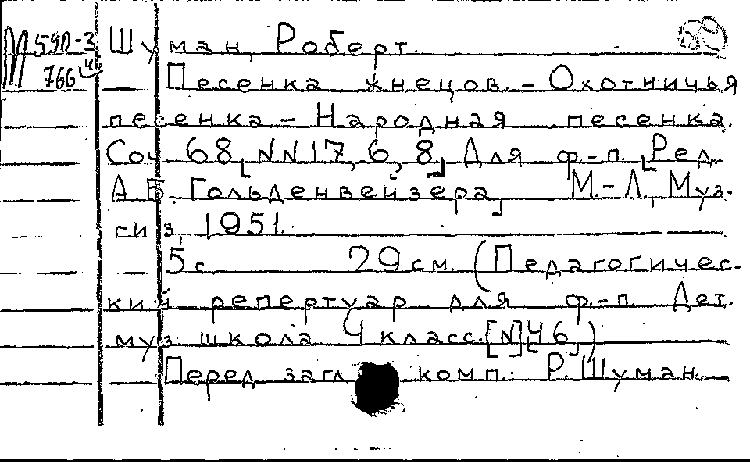 М 590-2 Шуман, Роберт
766 Песенка жнецов. – Охотничья
песенка – Народная песенка.
Соч 68, NN17, 6, 8, Для ф-п. [Ред.
А. Б. Гольденвейзера] М.-Л., Муз-
гиз, 1951.
5 с. 29 см. (Педагогичес-
кий репертуар для ф-п. Дет.
муз. школа 4 класс. [N] [46])
Перед загл. комп.: Р. Шуман